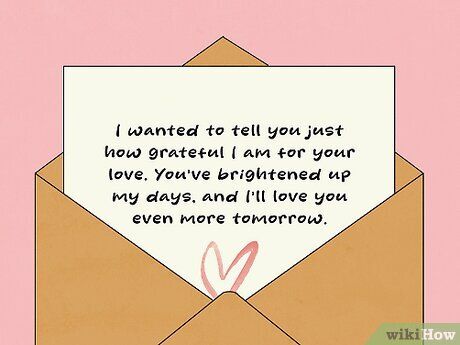 I wanted to tell you just
how grateful I am for your
love. You've brightened up
my days, and I'll love you
even more tomorrow.
wikiHow